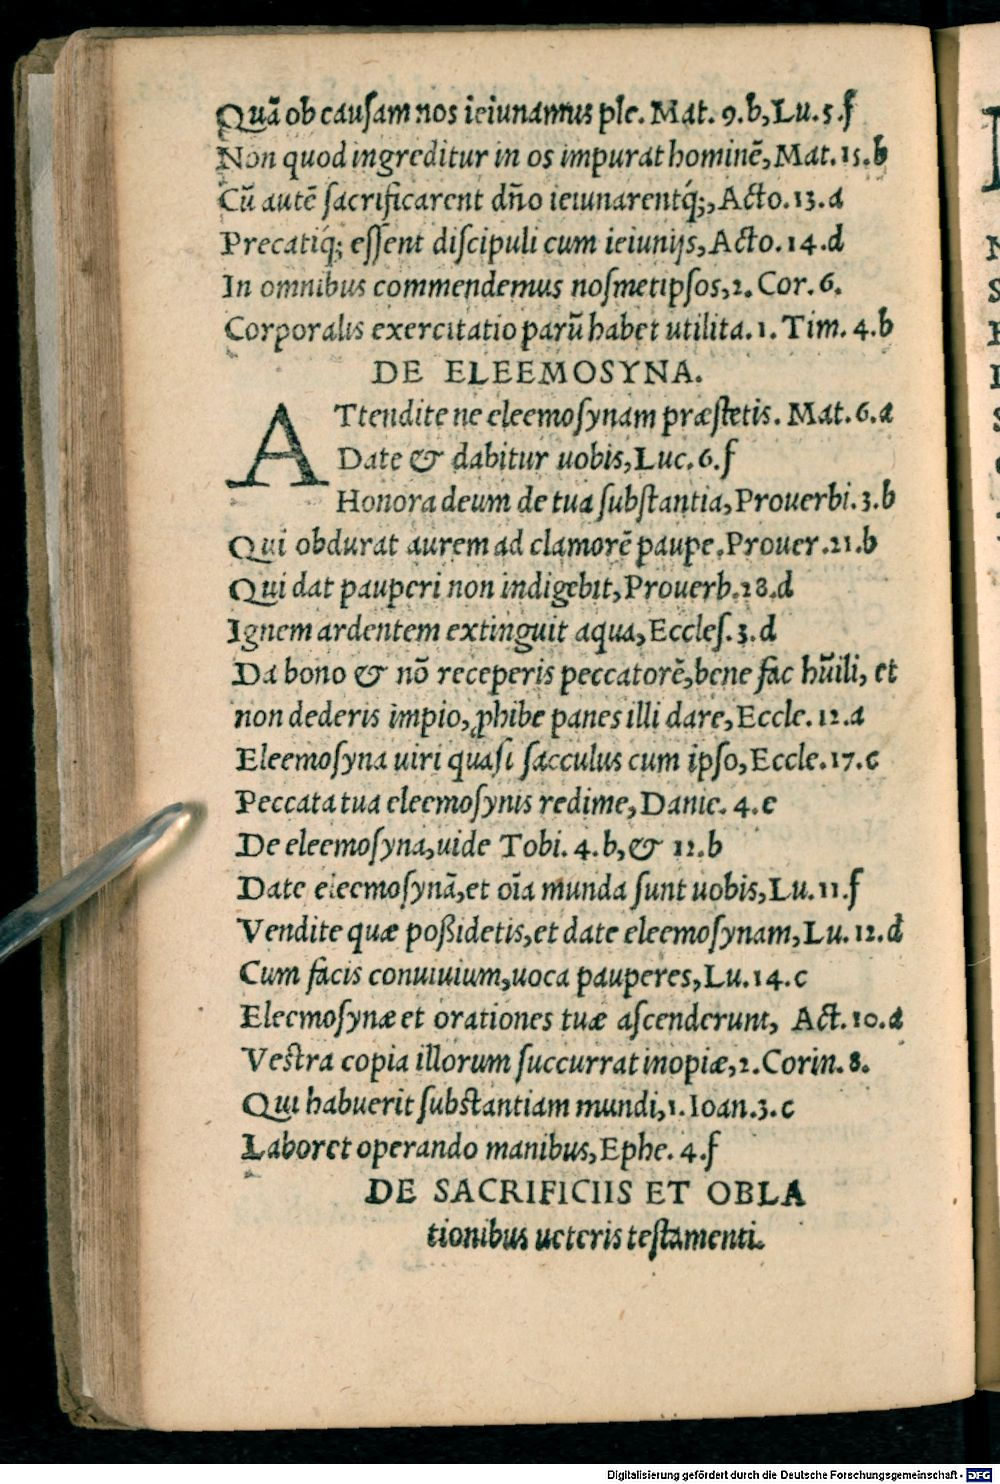 Quã ob causam nos ieiunamus ple. Mat. 9.b, Lu. 5.f
Non quod ingreditur in os impurat hominẽ, Mat. 15.b
Cũ autẽ sacrificarent dño ieiunarentq́;, Acto. 13.a
Precatiq́; essent discipuli cum ieiunijs, Acto. 14.d
In omnibus commendemus nosmetipsos, 2. Cor. 6.
Corporalis exercitatio parũ habet utilita. 1. Tim. 4.b
DE ELEEMOSYNA.
ATtendite ne eleemosynam præstetis. Mat. 6.a
Date & dabitur uobis, Luc. 6.f
Honora deum de tua substantia, Prouerbi. 3.b
Qui obdurat aurem ad clamorẽ paupe. Prouer. 21.b
Qui dat pauperi non indigebit, Prouerb. 28.d
Ignem ardentem extinguit aqua, Eccles. 3.d
Da bono & nõ receperis peccatorẽ, bene fac hũili, et
non dederis impio, ꝓhibe panes illi dare, Eccle. 12.a
Eleemosyna uiri quasi sacculus cum ipso, Eccle. 17.c
Peccata tua eleemosynis redime, Danie. 4.e
De eleemosyna, uide Tobi. 4.b, & 12.b
Date eleemosynã, et oĩa munda sunt uobis, Lu. 11.f
Vendite quæ poßidetis, et date eleemosynam, Lu. 12.d
Cum facis conuiuium, uoca pauperes, Lu. 14.c
Eleemosynæ et orationes tuæ ascenderunt, Act. 10.a
Vestra copia illorum succurrat inopiæ, 2. Corin. 8.
Qui habuerit substantiam mundi, 1. Ioan. 3.c
Laboret operando manibus, Ephe. 4.f
DE SACRIFICIIS ET OBLA
tionibus ueteris testamenti.
Digitalisierung gefördert durch die Deutsche Forschungsgemeinschaft - DFG